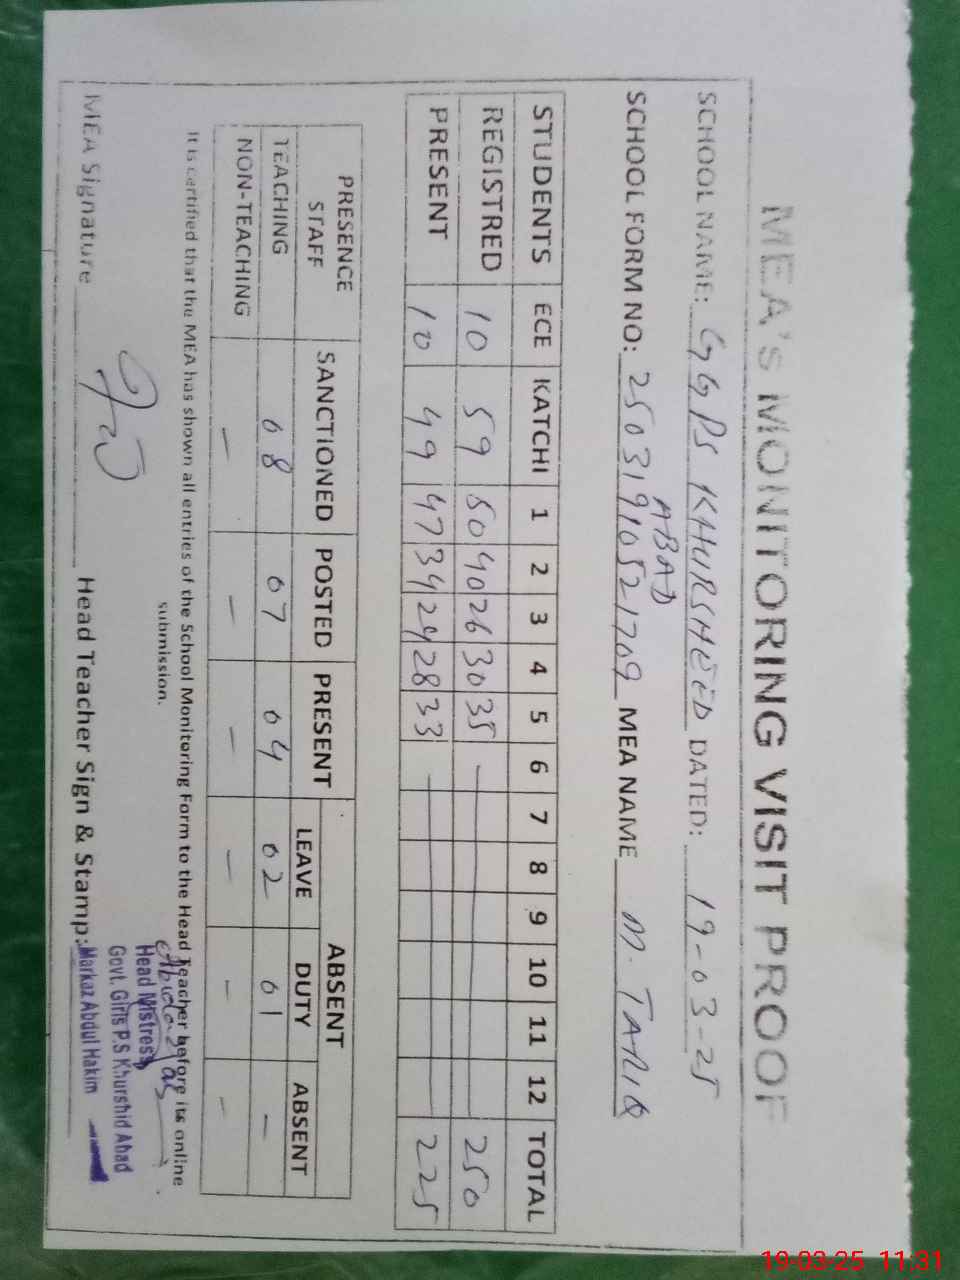 MEA's MONITORING VISIT PROOF
SCHOOL NAME: GGPS KHURSHEED DATED: 19-03-25
ABAD
SCHOOL FORM NO: 25031910521709 MEA NAME M. TARIQ
STUDENTS ECE KATCHI 1 2 3 4 5 6 7 8 9 10 11 12 TOTAL
REGISTRED 10 59 50 40 26 30 35 — 250
PRESENT 10 49 47 34 24 28 33 — 225
PRESENCE STAFF SANCTIONED POSTED PRESENT ABSENT
LEAVE DUTY ABSENT
TEACHING 08 07 04 02 01 –
NON-TEACHING – – – – – –
It is certified that the MEA has shown all entries of the School Monitoring Form to the Head Teacher before its online
submission.
MEA Signature Head Teacher Sign & Stamp:
Head Mistress
Govt. Girls P.S Khurshid Abad
Markaz Abdul Hakim
19-03-25 11:31